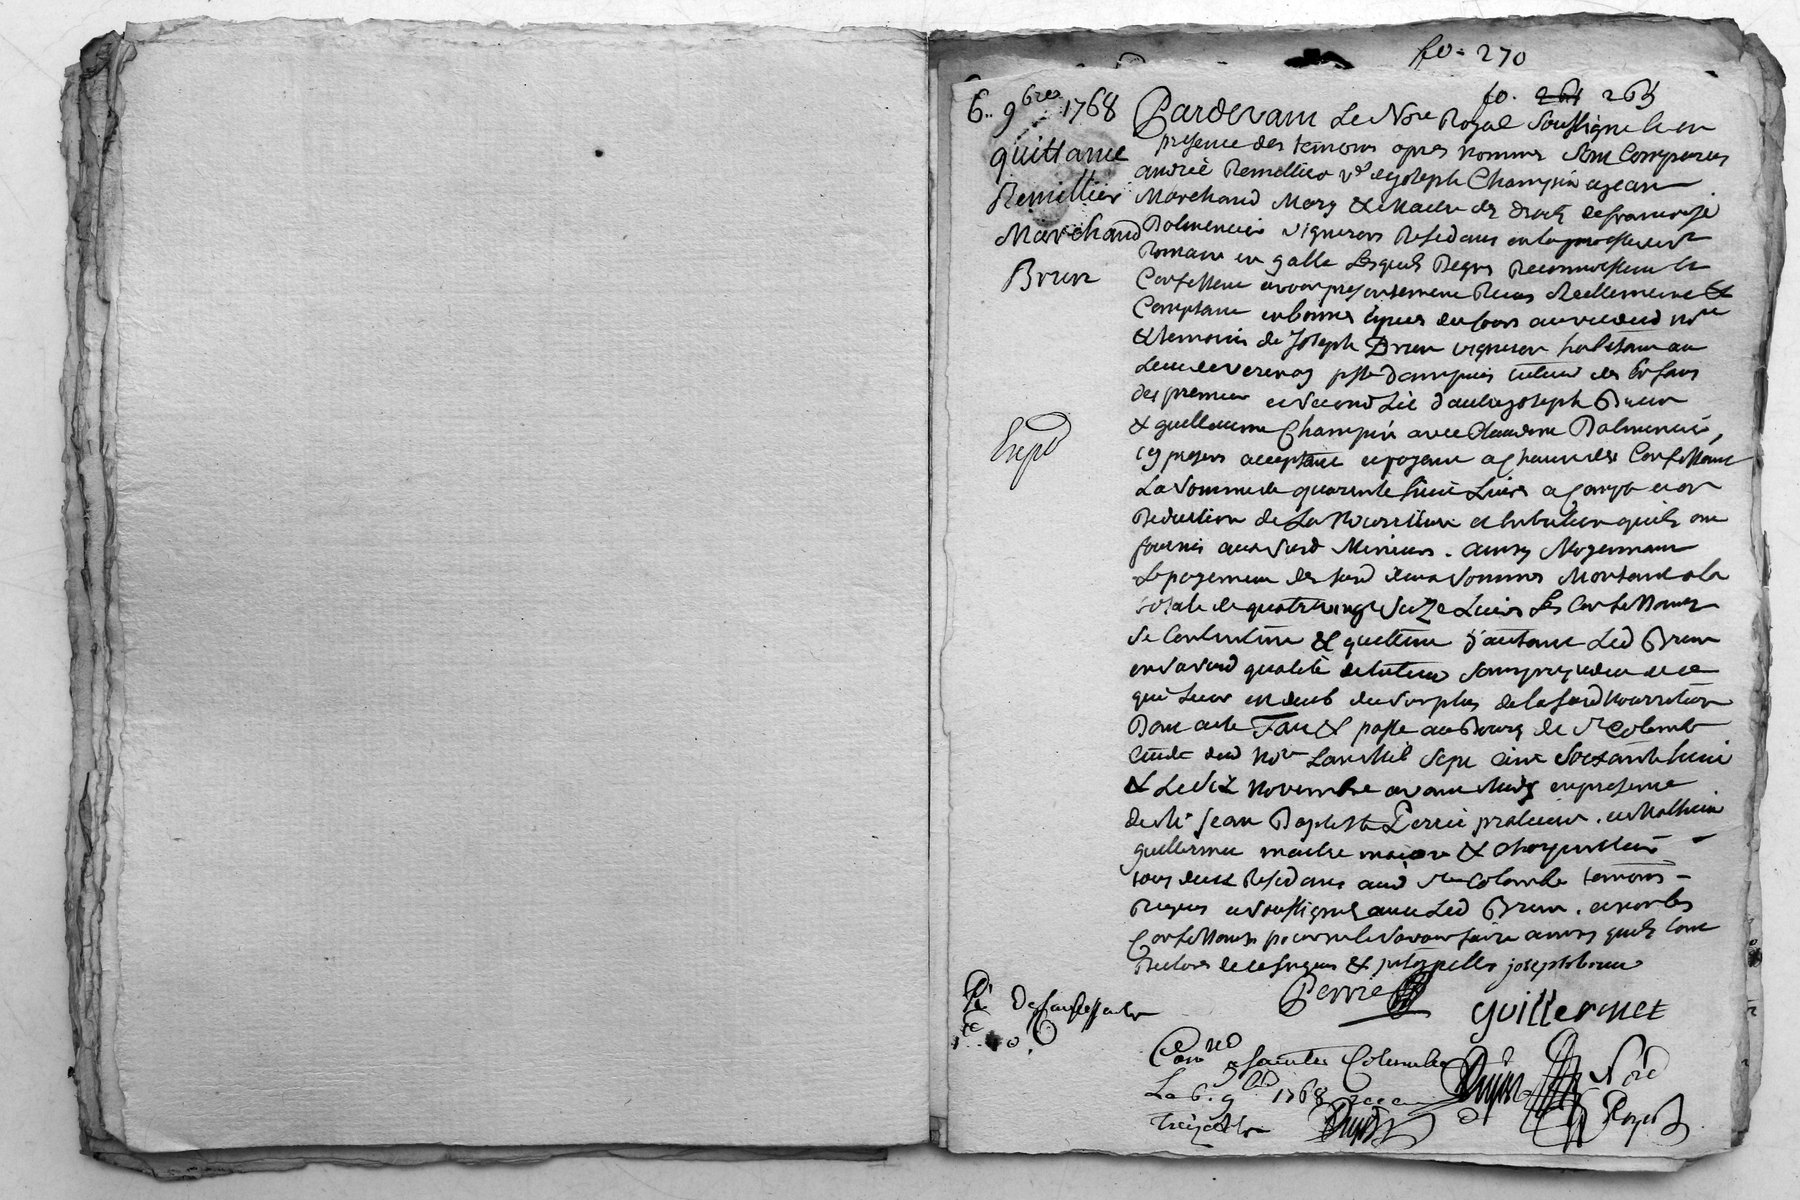 fo. 270
fo. 265
6.. 9bre 1768
quittance
Remillier
Marchand
Brun
Expd
Pardevant Le Nore Royal Soussigné & en
presence des temoins apres nommes sont comparus
andrée Remellier ve de Joseph Champin & jean
Marchand Mary & Maitre des droits de francoise
Dalmencier vignerons Residans en la parroisse de St
Romain en galle Lesquels Regus Reconnoissent &
Confessent avoir presentement Recus Reellement &
Comptant en bonnes Espèces du Cours au vu dud nore
& temoins de Joseph Brun vigneron habitant au
Lieu de verenay psse d'ampuis tuteur des Enfans
des premier et second Lit d'autre joseph Brun
& guillaume Champin avec Claudine Dalmencier,
cy present acceptant et payant a chacun des Confessants
La somme de quarente huit Livres a compte et en
Deduction de La Nourriture et entretien quils ont
fournis aux susd Mineurs. ainsy Moyennant
Le payement des susd deux sommes Montant a la
totale de quatre vingt seize Livres Les Confessants
Se Contentent & quittent d'autant Led Brun
en sa susd qualité de tuteur sans prejudice de ce
qui Leur est deub du surplus de la susd nourriture
Dont acte Fait & passé au Bourg de Ste Colombe
Etude dud Nore Lan Mil Sept Cent Soixante huit
& Le six novembre avant Midy en presence
de Mr jean Baptiste Perrie praticien. et Mathieu
guillermet maitre maçon & charpentier
tous deux Residans aud Ste Colombe temoins
Requis et soussignés avec Led Brun. et non les
Confessants pour ne le savoir faire ainsy quils l'ont
Declaré de ce enquis & interpellés joseph brun
Perrie
guillermet
Conlé a sainte Colombe
Le 6. 9bre 1768 Recu
treize s
Nore
Royal